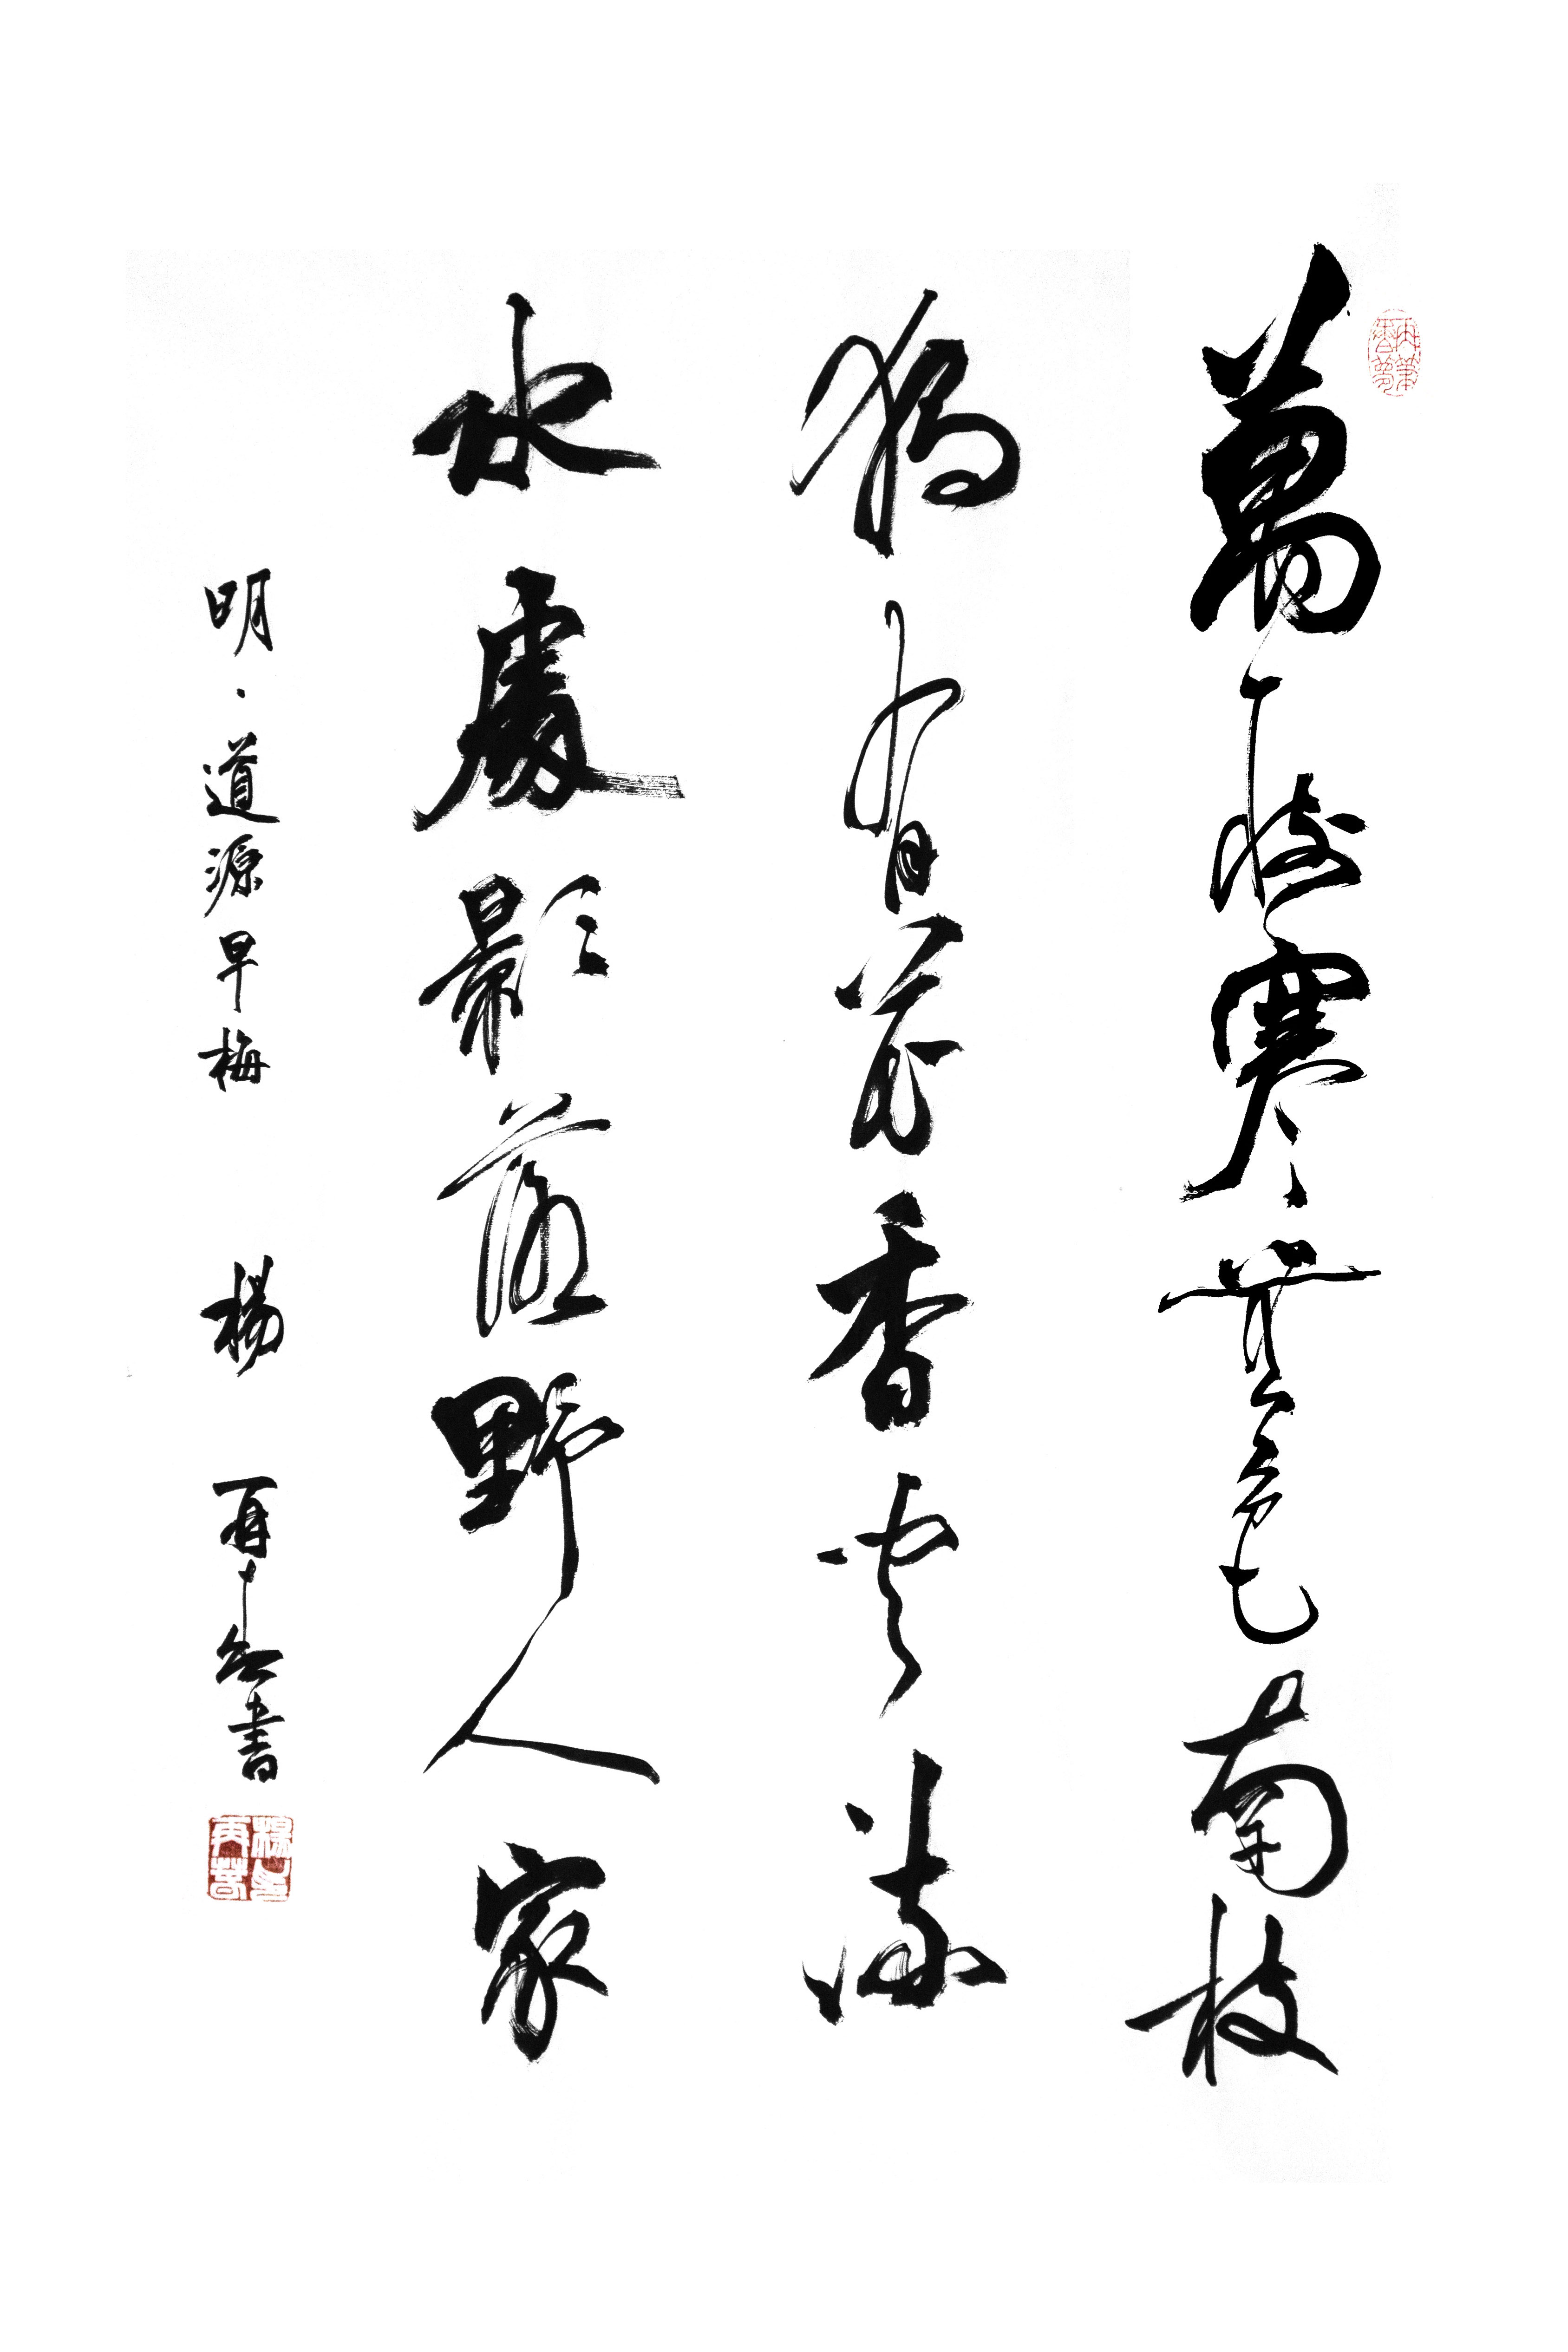 萬樹寒無色南枝
獨有花香聞流
水處影落野人家
明·道源早梅 楊再春書